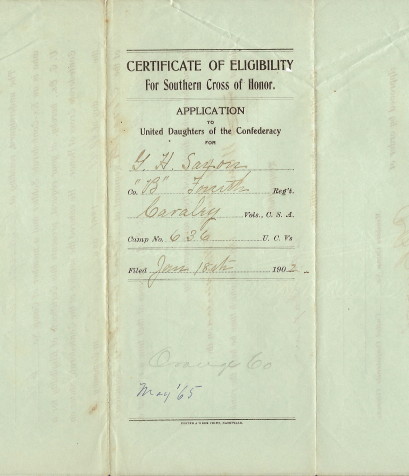 CERTIFICATE OF ELIGIBILITY
For Southern Cross of Honor.
APPLICATION
TO
United Daughters of the Confederacy
FOR
G. H. Saxon
Co. "B" Fourth Reg't.
Cavalry Vols., C. S. A.
Camp No. 636 U. C. Vs
Filed Jan 18th 1902
Orange Co
May '65